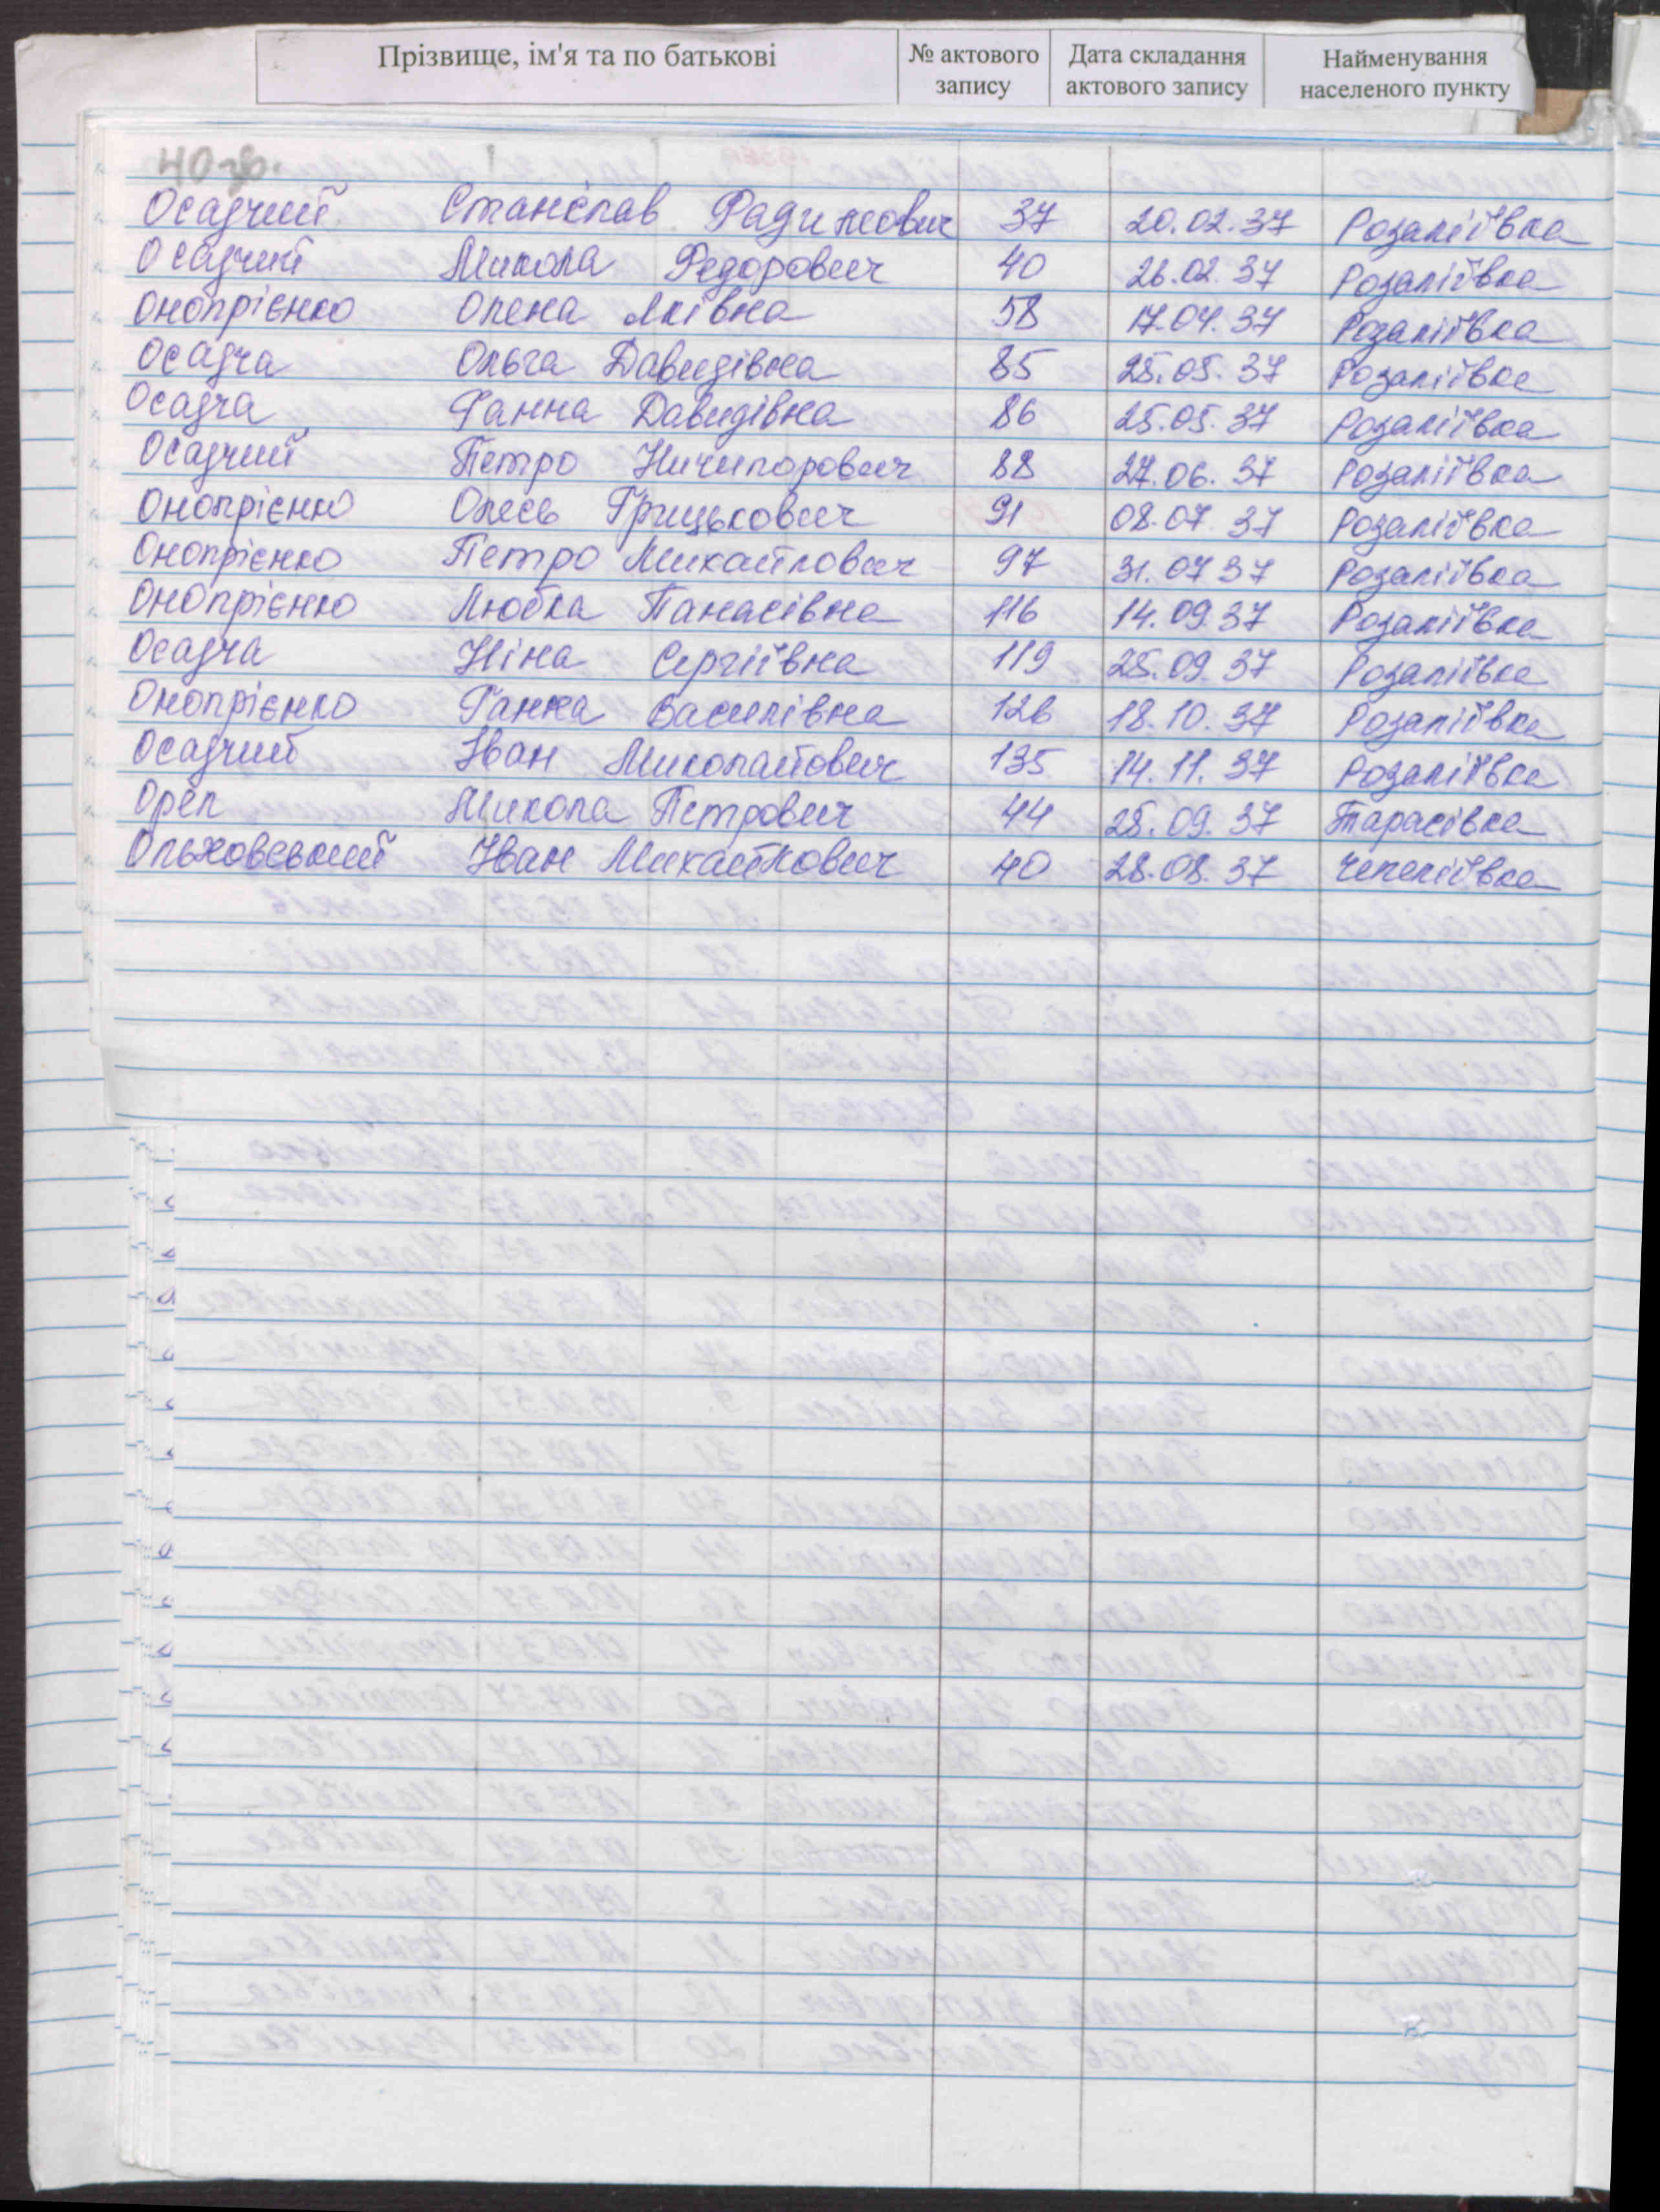 Прізвище, ім'я та по батькові № актового запису Дата складання актового запису Найменування населеного пункту
40 зв.
Осадчий Станіслав Радимович 37 20.02.37 Розаліївка
Осадчий Микола Федорович 40 26.02.37 Розаліївка
Онопрієнко Олена Яківна 58 17.04.37 Розаліївка
Осадча Ольга Давидівна 85 25.05.37 Розаліївка
Осадча Ганна Давидівна 86 25.05.37 Розаліївка
Осадчий Петро Ничипорович 88 27.06.37 Розаліївка
Онопрієнко Олесь Грицькович 91 08.07.37 Розаліївка
Онопрієнко Петро Михайлович 97 31.07.37 Розаліївка
Онопрієнко Любка Панасівна 116 14.09.37 Розаліївка
Осадча Ніна Сергіївна 119 25.09.37 Розаліївка
Онопрієнко Ганна Василівна 126 18.10.37 Розаліївка
Осадчий Іван Миколайович 135 14.11.37 Розаліївка
Орел Микола Петрович 44 28.09.37 Тарасівка
Ольховський Іван Михайлович 40 28.08.37 Чепеліївка